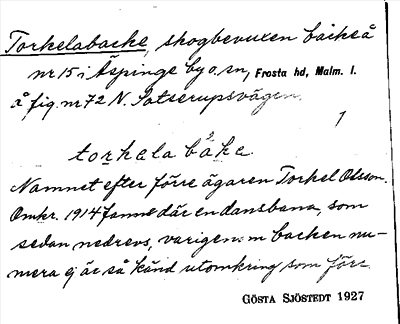 Torkelabacke, skogbevuxen backe å
nr 15 i Äspinge by o. sn, Frosta hd, Malm. l.
å fig. nr 72 N. Satserupsvägen.
1
torkala båka
Namnet efter förre ägaren Torkel Olsson.
Omkr. 1914 fanns där en dansbana, som
sedan nedrevs, varigenom backen nu-
mera ej är så känd utomkring som förr.
GÖSTA SJÖSTEDT 1927